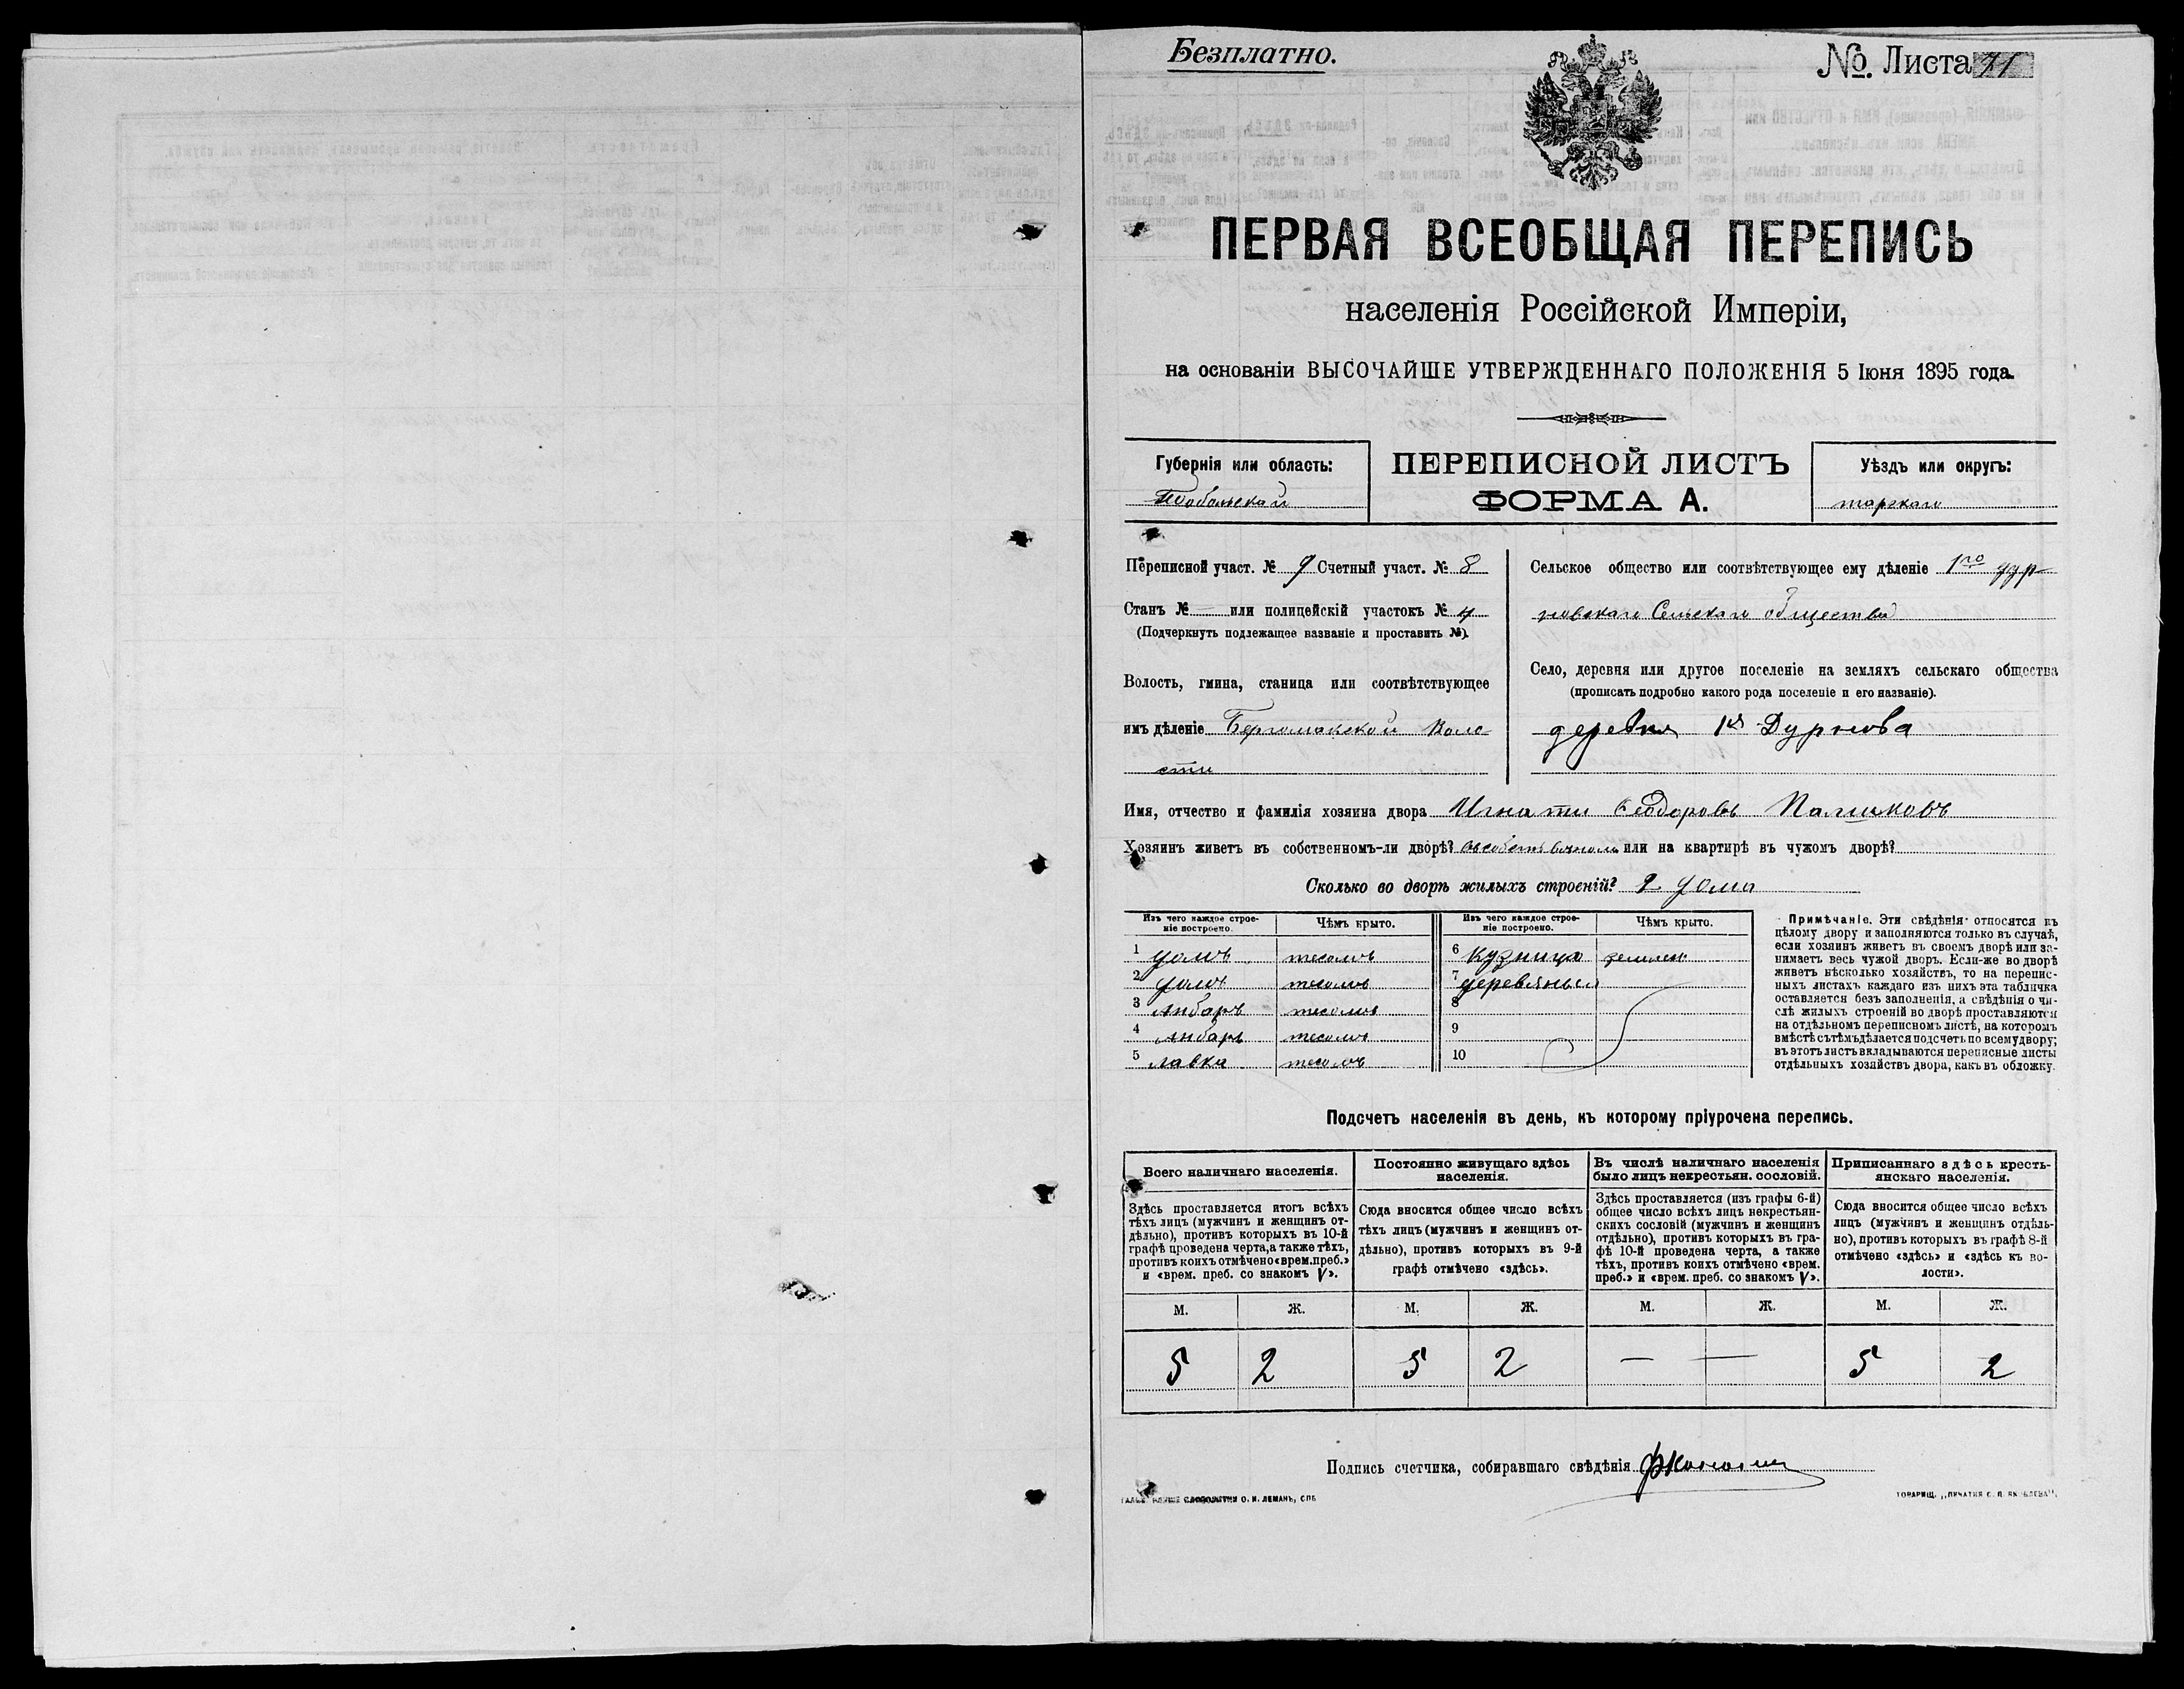 Безплатно.
№. Листа 71
ПЕРВАЯ ВСЕОБЩАЯ ПЕРЕПИСЬ
населенія Россійской Имперіи,
на основаніи ВЫСОЧАЙШЕ УТВЕРЖДЕННАГО ПОЛОЖЕНІЯ 5 Іюня 1895 года.
Губернія или область:
Тобольской
ПЕРЕПИСНОЙ ЛИСТЪ
ФОРМА А.
Уѣздъ или округъ:
тарскаго
Переписной участ. № 9 Счетный участ. № 8
Станъ № — или полицейскій участокъ № 4
(Подчеркнуть подлежащее названіе и проставить №).
Волость, гмина, станица или соотвѣтствующее
имъ дѣленіе Бергомакской Воло-
сти
Сельское общество или соотвѣтствующее ему дѣленіе 1го дур-
новскаго Сельскаго общества
Село, деревня или другое поселеніе на земляхъ сельскаго общества
(прописать подробно какого рода поселеніе и его названіе).
деревня 1я Дурнова
Имя, отчество и фамилія хозяина двора Игнати Ѳеодоровъ Палшковъ
Хозяинъ живетъ въ собственномъ-ли дворѣ? въ собственомъ или на квартирѣ въ чужомъ дворѣ?
Сколько во дворѣ жилыхъ строеній? 2 дома
Изъ чего каждое строе-
ніе построено.
Чѣмъ крыто.
Изъ чего каждое строе-
ніе построено.
Чѣмъ крыто.
1 домъ тесомъ 6 Кузница землею
2 домъ тесомъ 7 деревяныя
3 Анбаръ тесомъ 8
4 Анбаръ тесомъ 9
5 лавка тесомъ 10
Примѣчаніе. Эти свѣдѣнія относятся къ
цѣлому двору и заполняются только въ случаѣ,
если хозяинъ живетъ въ своемъ дворѣ или за-
нимаетъ весь чужой дворъ. Если-же во дворѣ
живетъ нѣсколько хозяйствъ, то на перепис-
ныхъ листахъ каждаго изъ нихъ эта табличка
оставляется безъ заполненія, а свѣдѣнія о чи-
слѣ жилыхъ строеній во дворѣ проставляются
на отдѣльномъ переписномъ листѣ, на которомъ
вмѣстѣ съ тѣмъ дѣлается подсчетъ по всему двору;
въ этотъ листъ вкладываются переписные листы
отдѣльныхъ хозяйствъ двора, какъ въ обложку.
Подсчетъ населенія въ день, къ которому пріурочена перепись.
Всего наличнаго населенія.
Здѣсь проставляется итогъ всѣхъ
тѣхъ лицъ (мужчинъ и женщинъ от-
дѣльно), противъ которыхъ въ 10-й
графѣ проведена черта, а также тѣхъ,
противъ коихъ отмѣчено «врем. преб.»
и «врем. преб. со знакомъ V».
Постоянно живущаго здѣсь
населенія.
Сюда вносится общее число всѣхъ
тѣхъ лицъ (мужчинъ и женщинъ от-
дѣльно), противъ которыхъ въ 9-й
графѣ отмѣчено «здѣсь».
Въ числѣ наличнаго населенія
было лицъ некрестьян. сословій.
Здѣсь проставляется (изъ графы 6-й)
общее число всѣхъ лицъ некрестьян-
скихъ сословій (мужчинъ и женщинъ
отдѣльно), противъ которыхъ въ гра-
фѣ 10-й проведена черта, а также
тѣхъ, противъ коихъ отмѣчено «врем.
преб.» и «врем. преб. со знакомъ V».
Приписаннаго здѣсь кресть-
янскаго населенія.
Сюда вносится общее число всѣхъ
лицъ (мужчинъ и женщинъ отдѣль-
но), противъ которыхъ въ графѣ 8-й
отмѣчено «здѣсь» и «здѣсь къ во-
лости».
М. Ж. М. Ж. М. Ж. М. Ж.
5 2 5 2 — — 5 2
Подпись счетчика, собиравшаго свѣдѣнія
СЛОВОЛИТНИ О. И. ЛЕМАНЪ, СПБ.
ТОВАРИЩ. „ПЕЧАТНЯ С. П. ЯКОВЛЕВА".